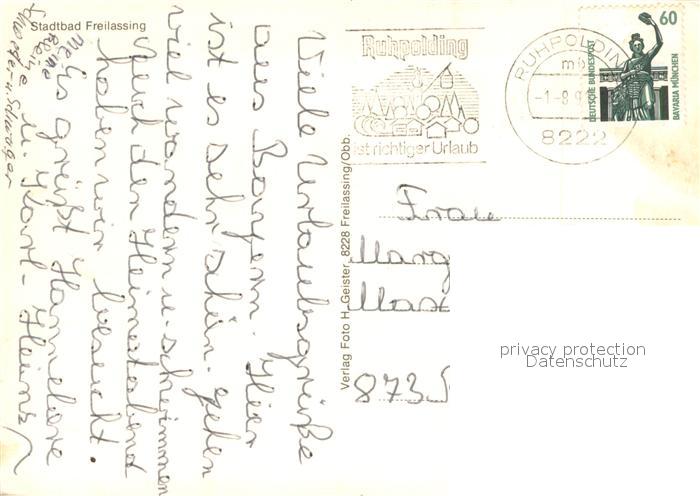 Stadtbad Freilassing
Viele Urlaubsgrüße
aus Bayern. Hier
ist es sehr schön. gehen
viel wandern u. schwimmen
Auch den Heimatabend
haben wir besucht.
Es grüßt Hannelore
u. Karl-Heinz
Schwager
Verlag Foto H. Geister, 8228 Freilassing/Obb.
Ruhpolding
ist richtiger Urlaub
RUHPOLDIN
mb
-1.-8.9
8222
60
DEUTSCHE BUNDESPOST
BAVARIA MÜNCHEN
Frau
Marg
8735
privacy protection
Datenschutz